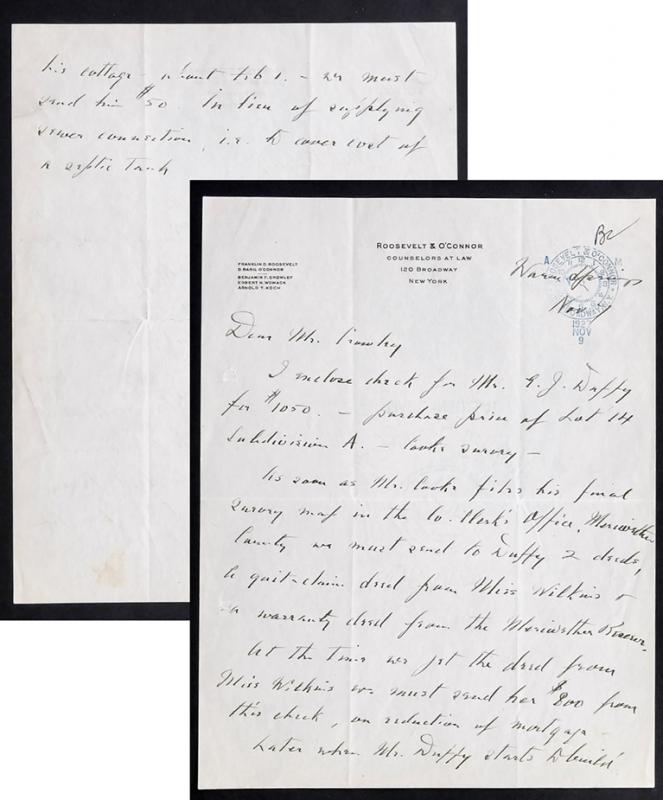 ROOSEVELT & O'CONNOR
COUNSELORS AT LAW
120 BROADWAY
NEW YORK
FRANKLIN D. ROOSEVELT
D. BASIL O'CONNOR
BENJAMIN F. CROWLEY
EGBERT N. WOMACK
ARNOLD T. KOCH
ROOSEVELT & O'CONNOR
BROADWAY
1927
NOV
9
Warm Springs
Nov
Dear Mr. Crowley
I enclose check for Mr. G. J. Duffy
for $1050. – purchase price of Lot 14
Subdivision A. – Cooks survey –
As soon as Mr. Cooks files his final
survey map in the Co. Clerk's Office, Meriwether
County we must send to Duffy 2 deeds,
a quit-claim deed from Miss Wilkins &
a warranty deed from the Meriwether Reserve.
At the time we get the deed from
Miss Wilkins we must send her $800 from
this check, on reduction of mortgage –
Later when Mr. Duffy starts to build
his cottage – about Feb 1. – we must
send him $50. in lieu of supplying
sewer connection, i.e. to cover cost of
a septic tank